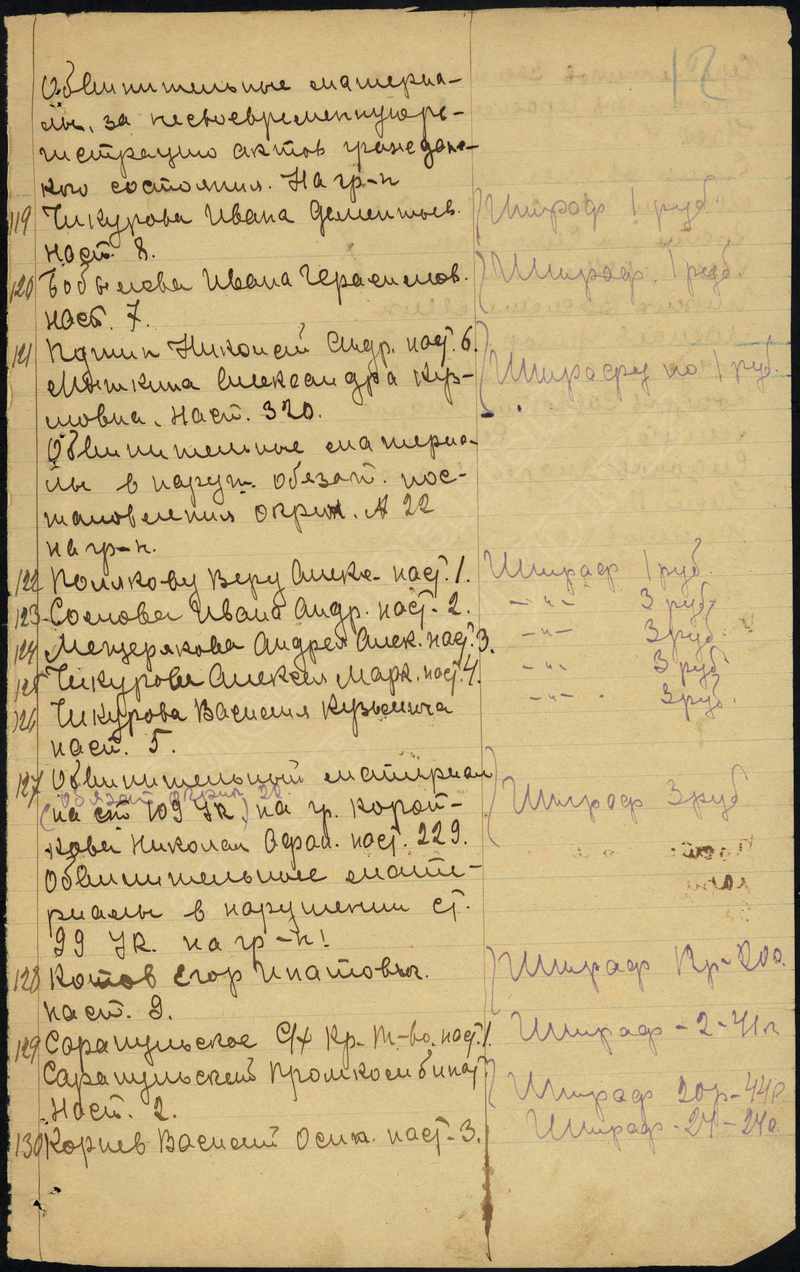 12
Обвинительные материа-
лы, за несвоевременную ре-
гистрацию актов граждане-
кого состояния. На гр-н
119 Чикурова Ивана Дементьев. Штраф 1 руб.
наст. 8.
120 Бобылева Ивана Герасимов. Штраф 1 руб.
наст. 7.
121 Николай Андр. наст. 6.
Мышкина Александра Кузь- Штрафу по 1 руб.
мовна, наст. 320.
Обвинительные материа-
лы в наруш. обязат. пос-
тановления окрик. № 22
на гр-н.
122 Полякову Веру Алекс- наст. 1. Штраф 1 руб.
123 Сомова Ивана Андр. наст- 2. -"- 3 руб.
124 Мещерякова Андрея Алек. наст. 3. -"- 3 руб.
125 Чикурова Алексея Марк. наст. 4. -"- 3 руб
126 Чикурова Василия Кузьмича -"- 3 руб.
наст. 5.
127 Обвинительный материал
(обязат. окрик 20.
на ст 109 УК) на гр. Корот- Штраф 3 руб
кова Николая Афан. наст. 229.
Обвинительные мате-
риалы в нарушении ст.
99 УК. на гр-н!
128 Котов Егор Ипатович. Штраф
наст. 9.
129 Сарапульское С/х Кр. Т-во. наст. 1. Штраф - 2 - 41к
Сарапульский Промкомбинат
наст. 2. Штраф 20р-44к
130 Корнев Василий Осип. наст- 3. Штраф - 24 - 24к